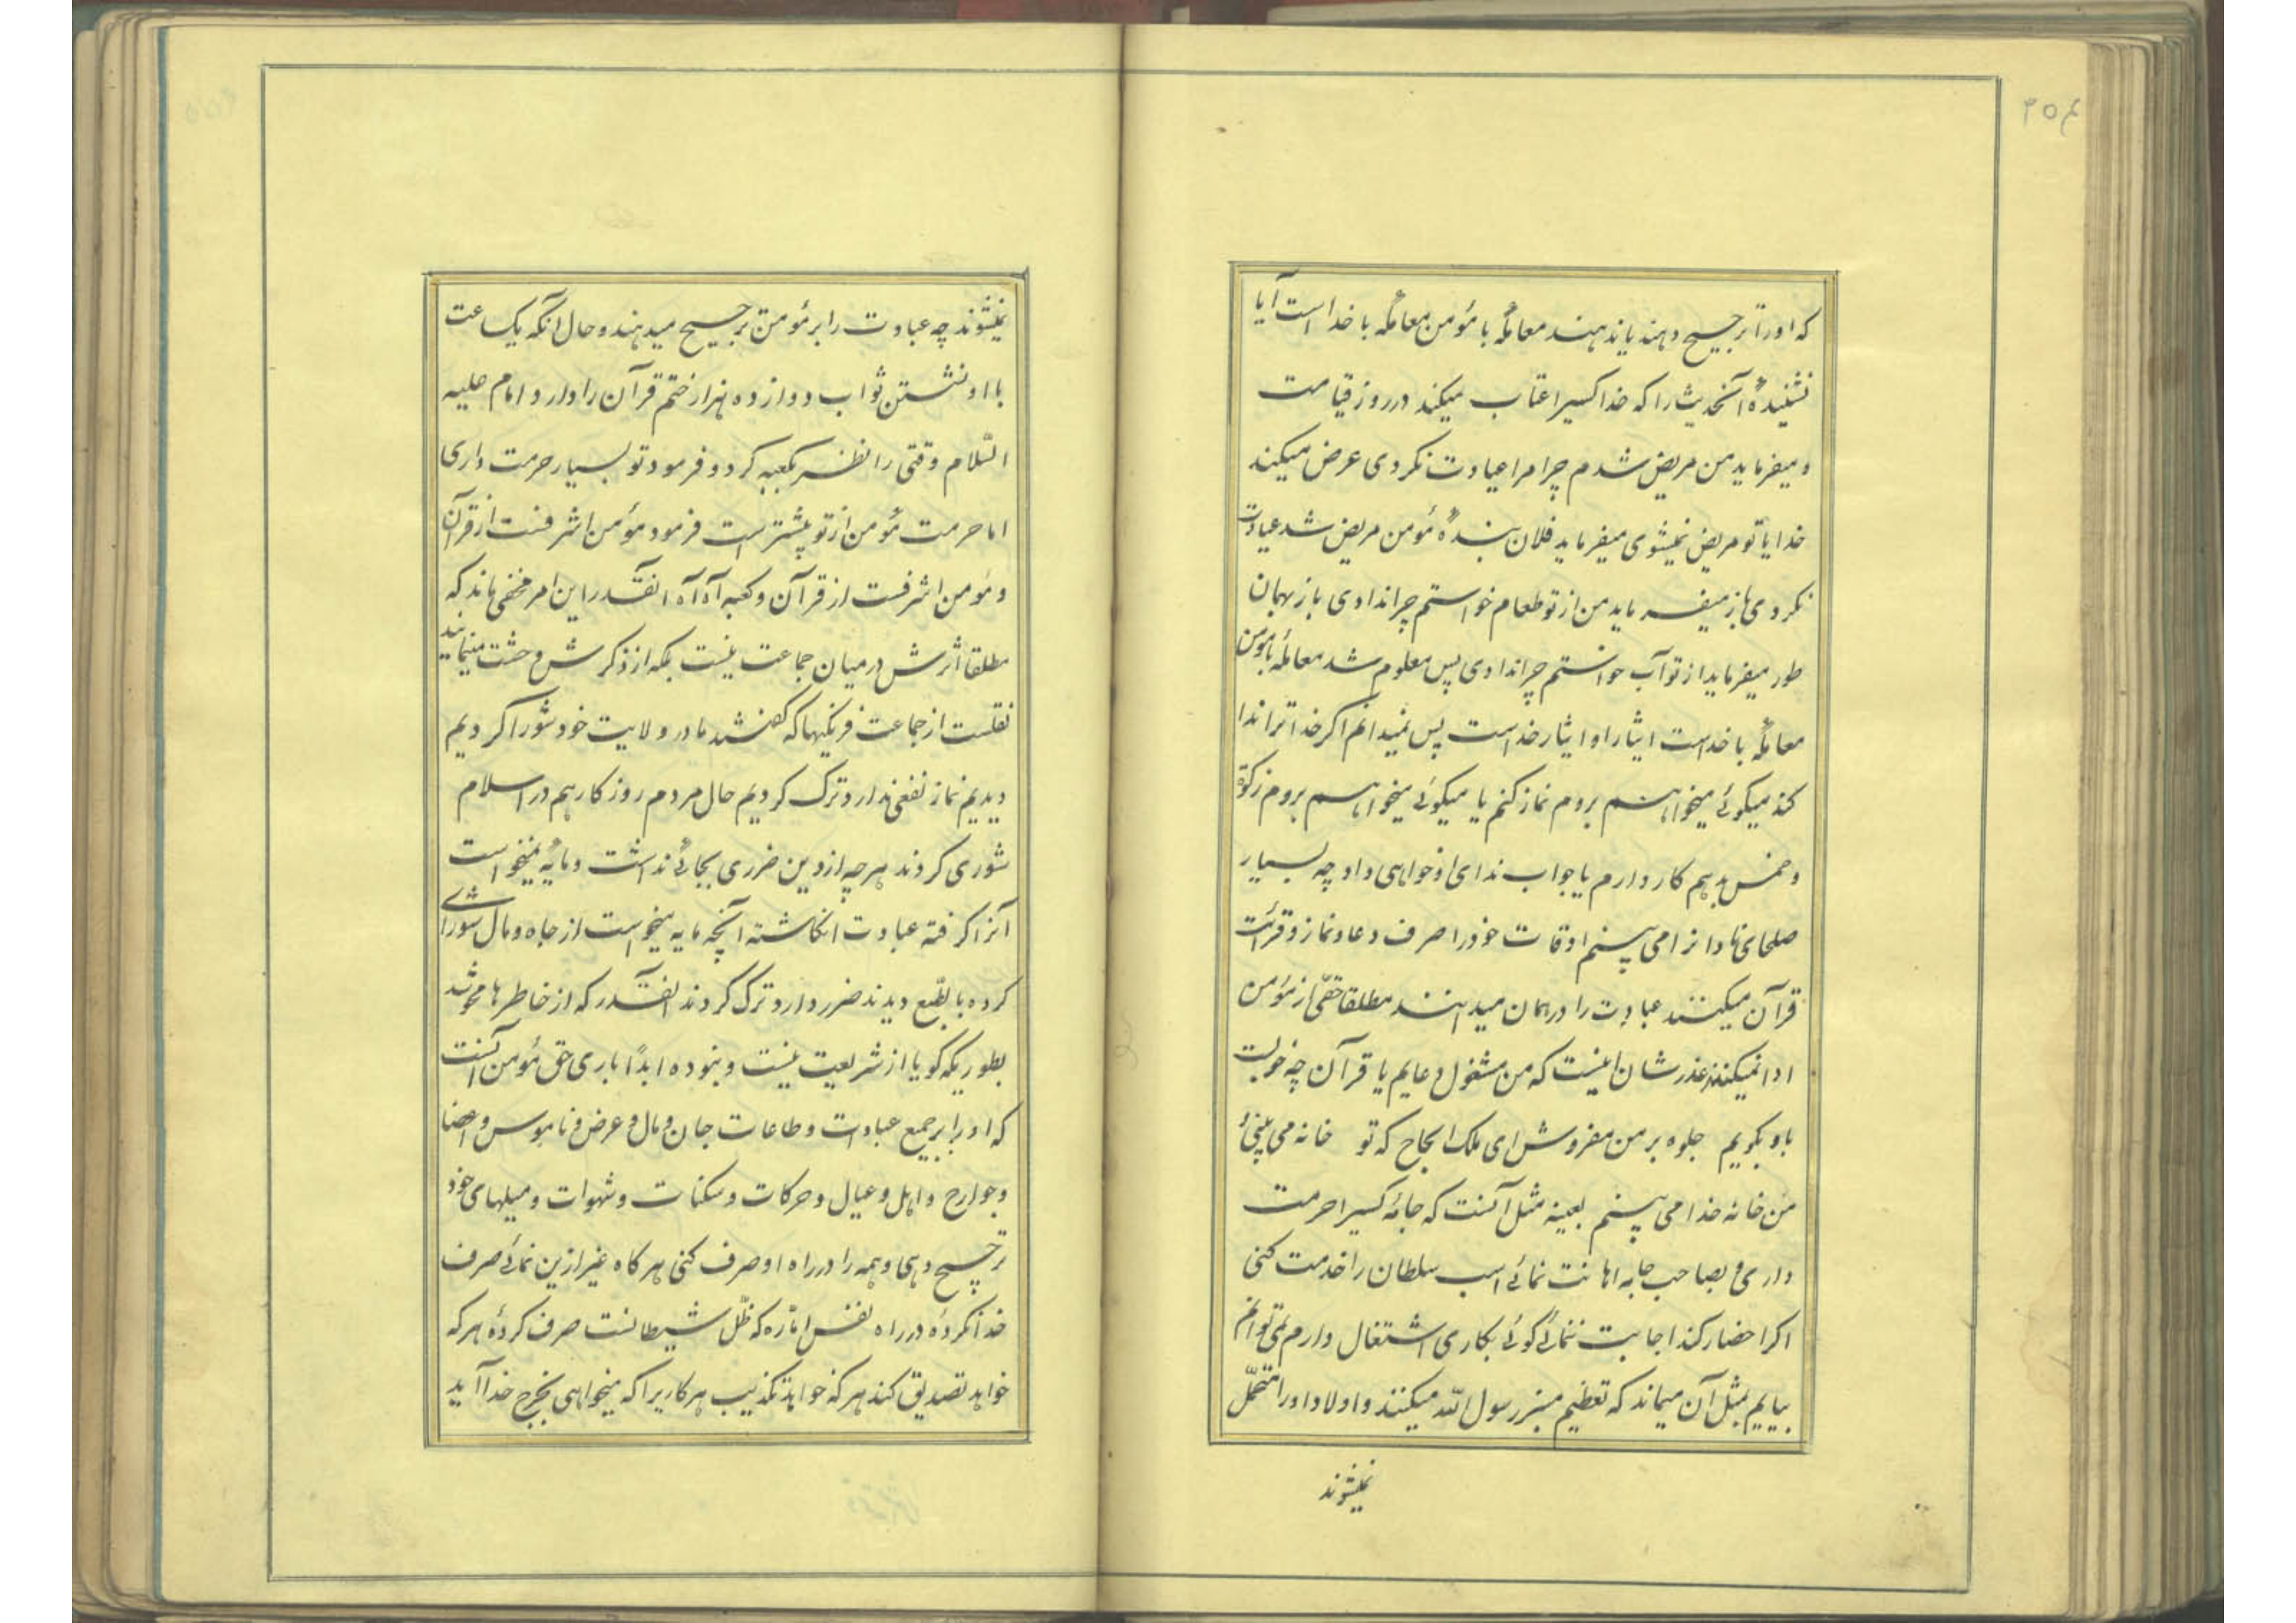 ۳۵۴
که اورا ترجیح دهند یا ندهند معاملهٔ با مؤمن معاملهٔ با خدا است آیا
نشنیدهٔ آنحدیث را که خدا کسیرا عتاب میکند در روز قیامت
و میفرماید من مریض شدم چرا مرا عیادت نکردی عرض میکند
خدایا تو مریض نمیشوی میفرماید فلان بندهٔ مؤمن مریض شد عیادت
نکردی باز میفرماید من از تو طعام خواستم چرا ندادی باز بهمان
طور میفرماید از تو آب خواستم چرا ندادی پس معلوم شد معاملهٔ با مؤمن
معاملهٔ با خداست ایثار او ایثار خداست پس نمیدانم اگر خدا ترا ندا
کند میگوئی میخواهم بروم نماز کنم یا میگوئی میخواهم بروم زکوة
و خمس بدهم کار دارم یا جواب ندای او خواهی داد چه بسیار
صلحای نادانرا می بینم اوقات خودرا صرف دعا و نماز و قرائت
قرآن میکنند عبادت را در همان میدانند مطلقا حقی از مؤمن
ادا نمیکنند عذرشان اینست که من مشغول دعایم یا قرآن چه خوبست
باو بگویم جلوه بر من مفروش ای ملک الحاج که تو خانه می بینی و
من خانه خدا می بینم بعینه مثل آنست که جامهٔ کسیرا حرمت
داری و بصاحب جامه اهانت نمائی اسب سلطان را خدمت کنی
اگر احضار کند اجابت ننمائی گوئی بکاری اشتغال دارم نمی توانم
بیایم بمثل آن میماند که تعظیم منبر رسول الله میکنند و اولاد اورا متحمل
نمیشوند
نمیشوند چه عبادت را بر مؤمن ترجیح میدهند و حال آنکه یکساعت
با او نشستن ثواب دوازده هزار ختم قرآن را دارد امام علیه
السّلام وقتی را نظر بکعبه کرد و فرمود تو بسیار حرمت داری
اما حرمت مؤمن از تو بیشتر است فرمود مؤمن اشرفست از قرآن
و مؤمن اشرفست از قرآن و کعبه آه آه آنقدر این امر مخفی ماند که
مطلقا اثرش در میان جماعت نیست بلکه از ذکرش وحشت مینمایند
نقلست از جماعت فرنگیها که گفتند ما در ولایت خود شورا کردیم
دیدیم نماز نفعی ندارد ترک کردیم حال مردم روزگار هم در اسلام
شوری کردند هر چه از دین ضرری بجائی نداشت و مایهٔ نمیخواست
آنرا گرفته عبادت انگاشته آنچه مایه میخواست از جاه و مال شورای
کرده بالطبع دیدند ضرر دارد ترک کردند آنقدر که از خاطرها محو شد
بطوریکه گویا از شریعت نیست و نبوده ابداً باری حق مؤمن آنست
که اورا بر جمیع عبادات و طاعات جان و مال و عرض و ناموس و اعضا
و جوارح و اهل و عیال و حرکات و سکنات و شهوات و میلهای خود
ترجیح دهی و همه را در راه او صرف کنی هر گاه غیر ازین نمائی صرف
خدا نکردهٔ در راه نفس امّاره که ظلّ شیطانست صرف کردهٔ هر که
خواهد تصدیق کند هر که خواهد تکذیب هر کاریرا که میخواهی بخرج خدا آید